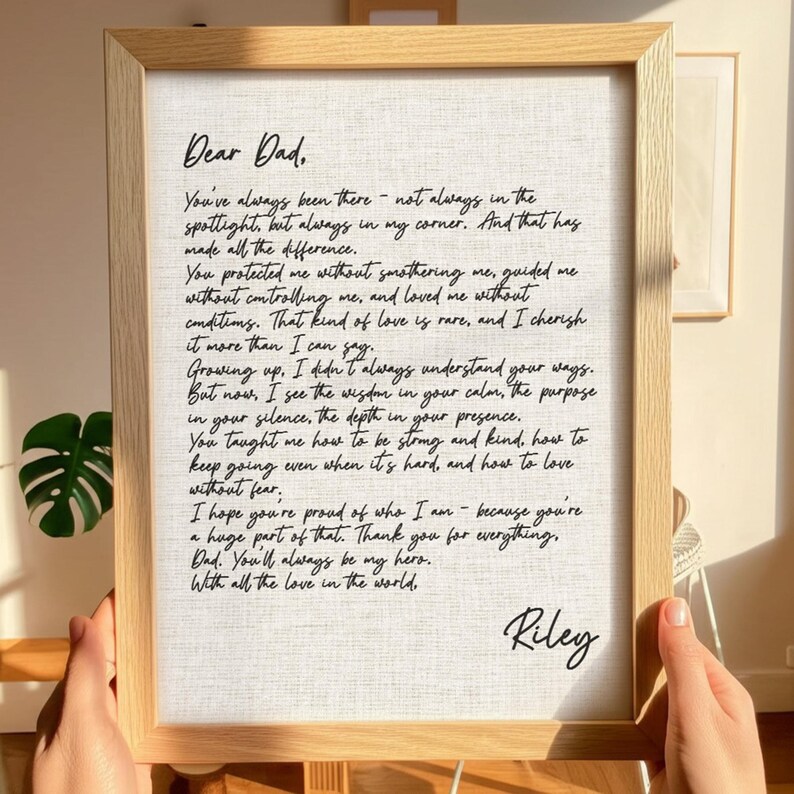 Dear Dad,
You've always been there - not always in the
spotlight, but always in my corner. And that has
made all the difference.
You protected me without smothering me, guided me
without controlling me, and loved me without
conditions. That kind of love is rare, and I cherish
it more than I can say.
Growing up, I didn't always understand your ways.
But now, I see the wisdom in your calm, the purpose
in your silence, the depth in your presence.
You taught me how to be strong and kind, how to
keep going even when it's hard, and how to love
without fear.
I hope you're proud of who I am - because you're
a huge part of that. Thank you for everything,
Dad. You'll always be my hero.
With all the love in the world,
Riley